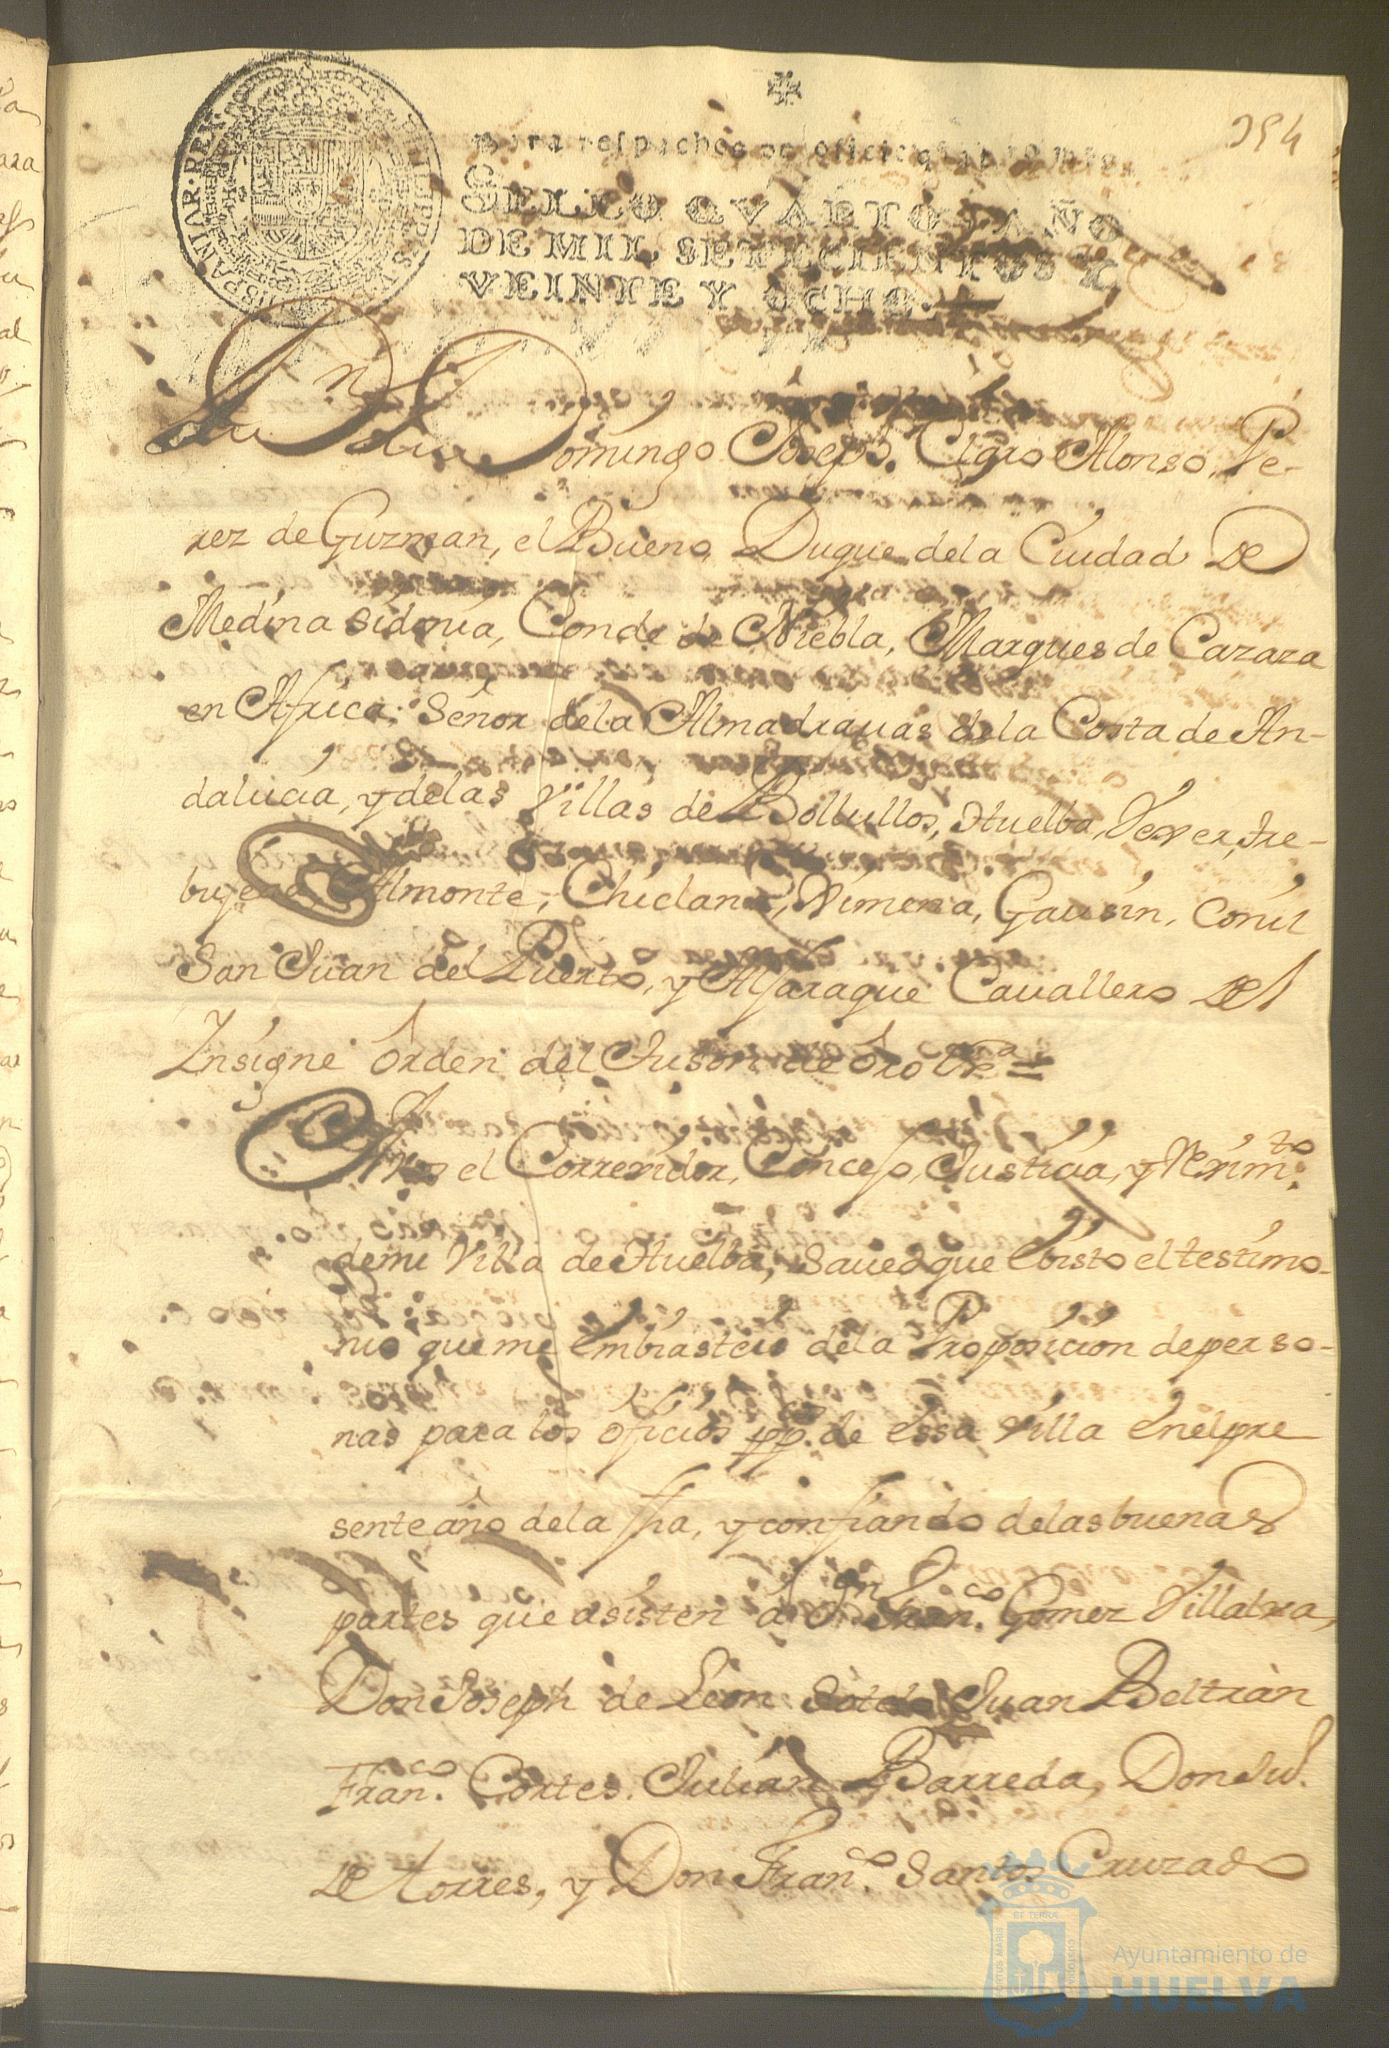 354
Para despachos de oficio quatro mrs.
SELLO QVARTO, AÑO
DE MIL SETECIENTOS Y
VEINTE Y OCHO.
HISPANIAR. REX PHILIPPVS V
Dn Domingo Joseph Claro Alonso Pe-
rez de Guzman, el Bueno, Duque dela Ciudad de
Medina Sidonia, Conde de Niebla, Marques de Cazaza
en Africa, Señor dela Almadrauas dela Costa de An-
dalucia, y delas Villas de Bollullos, Huelba, Vexer, tre-
bugena, Almonte, Chiclana, Ximena, Gausin, Conil
San Juan del Puerto, y Aljaraque Cavallero del
Insigne orden del tuson de oro Vra =
A Vos el Correxidor, Concejo, Justicia, y Reximto
demi Villa de Huelba, Saued que e bisto el testimo-
nio queme embiasteis dela Proposicion deperso-
nas para los oficios ppcos de essa Villa enelpre
senteaño dela fha, y confiando delasbuenas
partes que asisten a Dn Franco Gomez Villalva,
Don Joseph de Leon Sotelo Juan Beltràn
Franco Cortes Julian Barreda, Don Ju.
de torres, y Don Franco Santos Cruzado
PORTUS MARIS ET TERRAE CUSTODIA
Ayuntamiento de
HUELVA